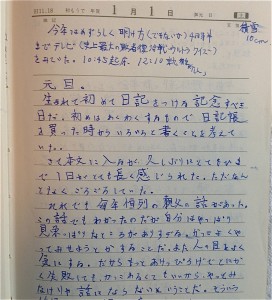 1月1日
積雪
10cm
今年はめずらしく明け方(でもないか)4時半
までテレビ(史上最大の敗者復活戦ウルトラクイズ)
をみていた。10:45起床 12:10就寝
元旦。
生まれて初めて日記をつける記念すべき
日だ。初めはわくわくするもので日記帳
を買った時からいろいろと書くことを考えて
いた。
さて本文に入るが、久しぶりにとてもひま
で1日がとても長く感じられた。ただなん
となくごろごろしていた。
それでも毎年恒例の親父の話があった。
この話でもわかったのだが自分はやっぱり
見栄っぱりなところがありすぎる。かっこよくや
ってみせようとかすることだ。また人の目をよく
気にする。だからもっとありっぴろげでとにかく
失敗しても、かっこわるくてもいいから、やってみ
なければ話にならないということだ。そういう